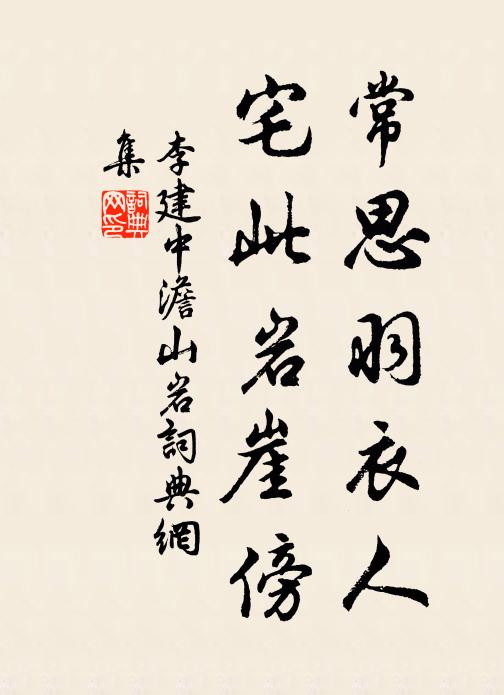 常思羽衣人
宅此岩崖傍
李建中澹山岩詞典網
集
詞典
网印